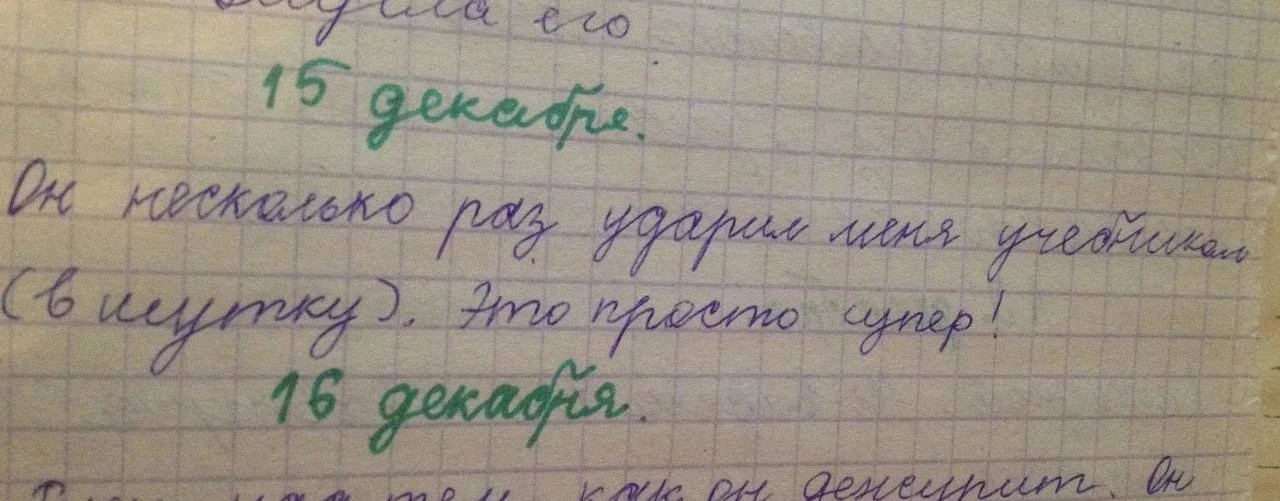 его
15 декабря.
Он несколько раз ударил меня учебником
(в шутку). Это просто супер!
16 декабря.
как он дежурит. Он